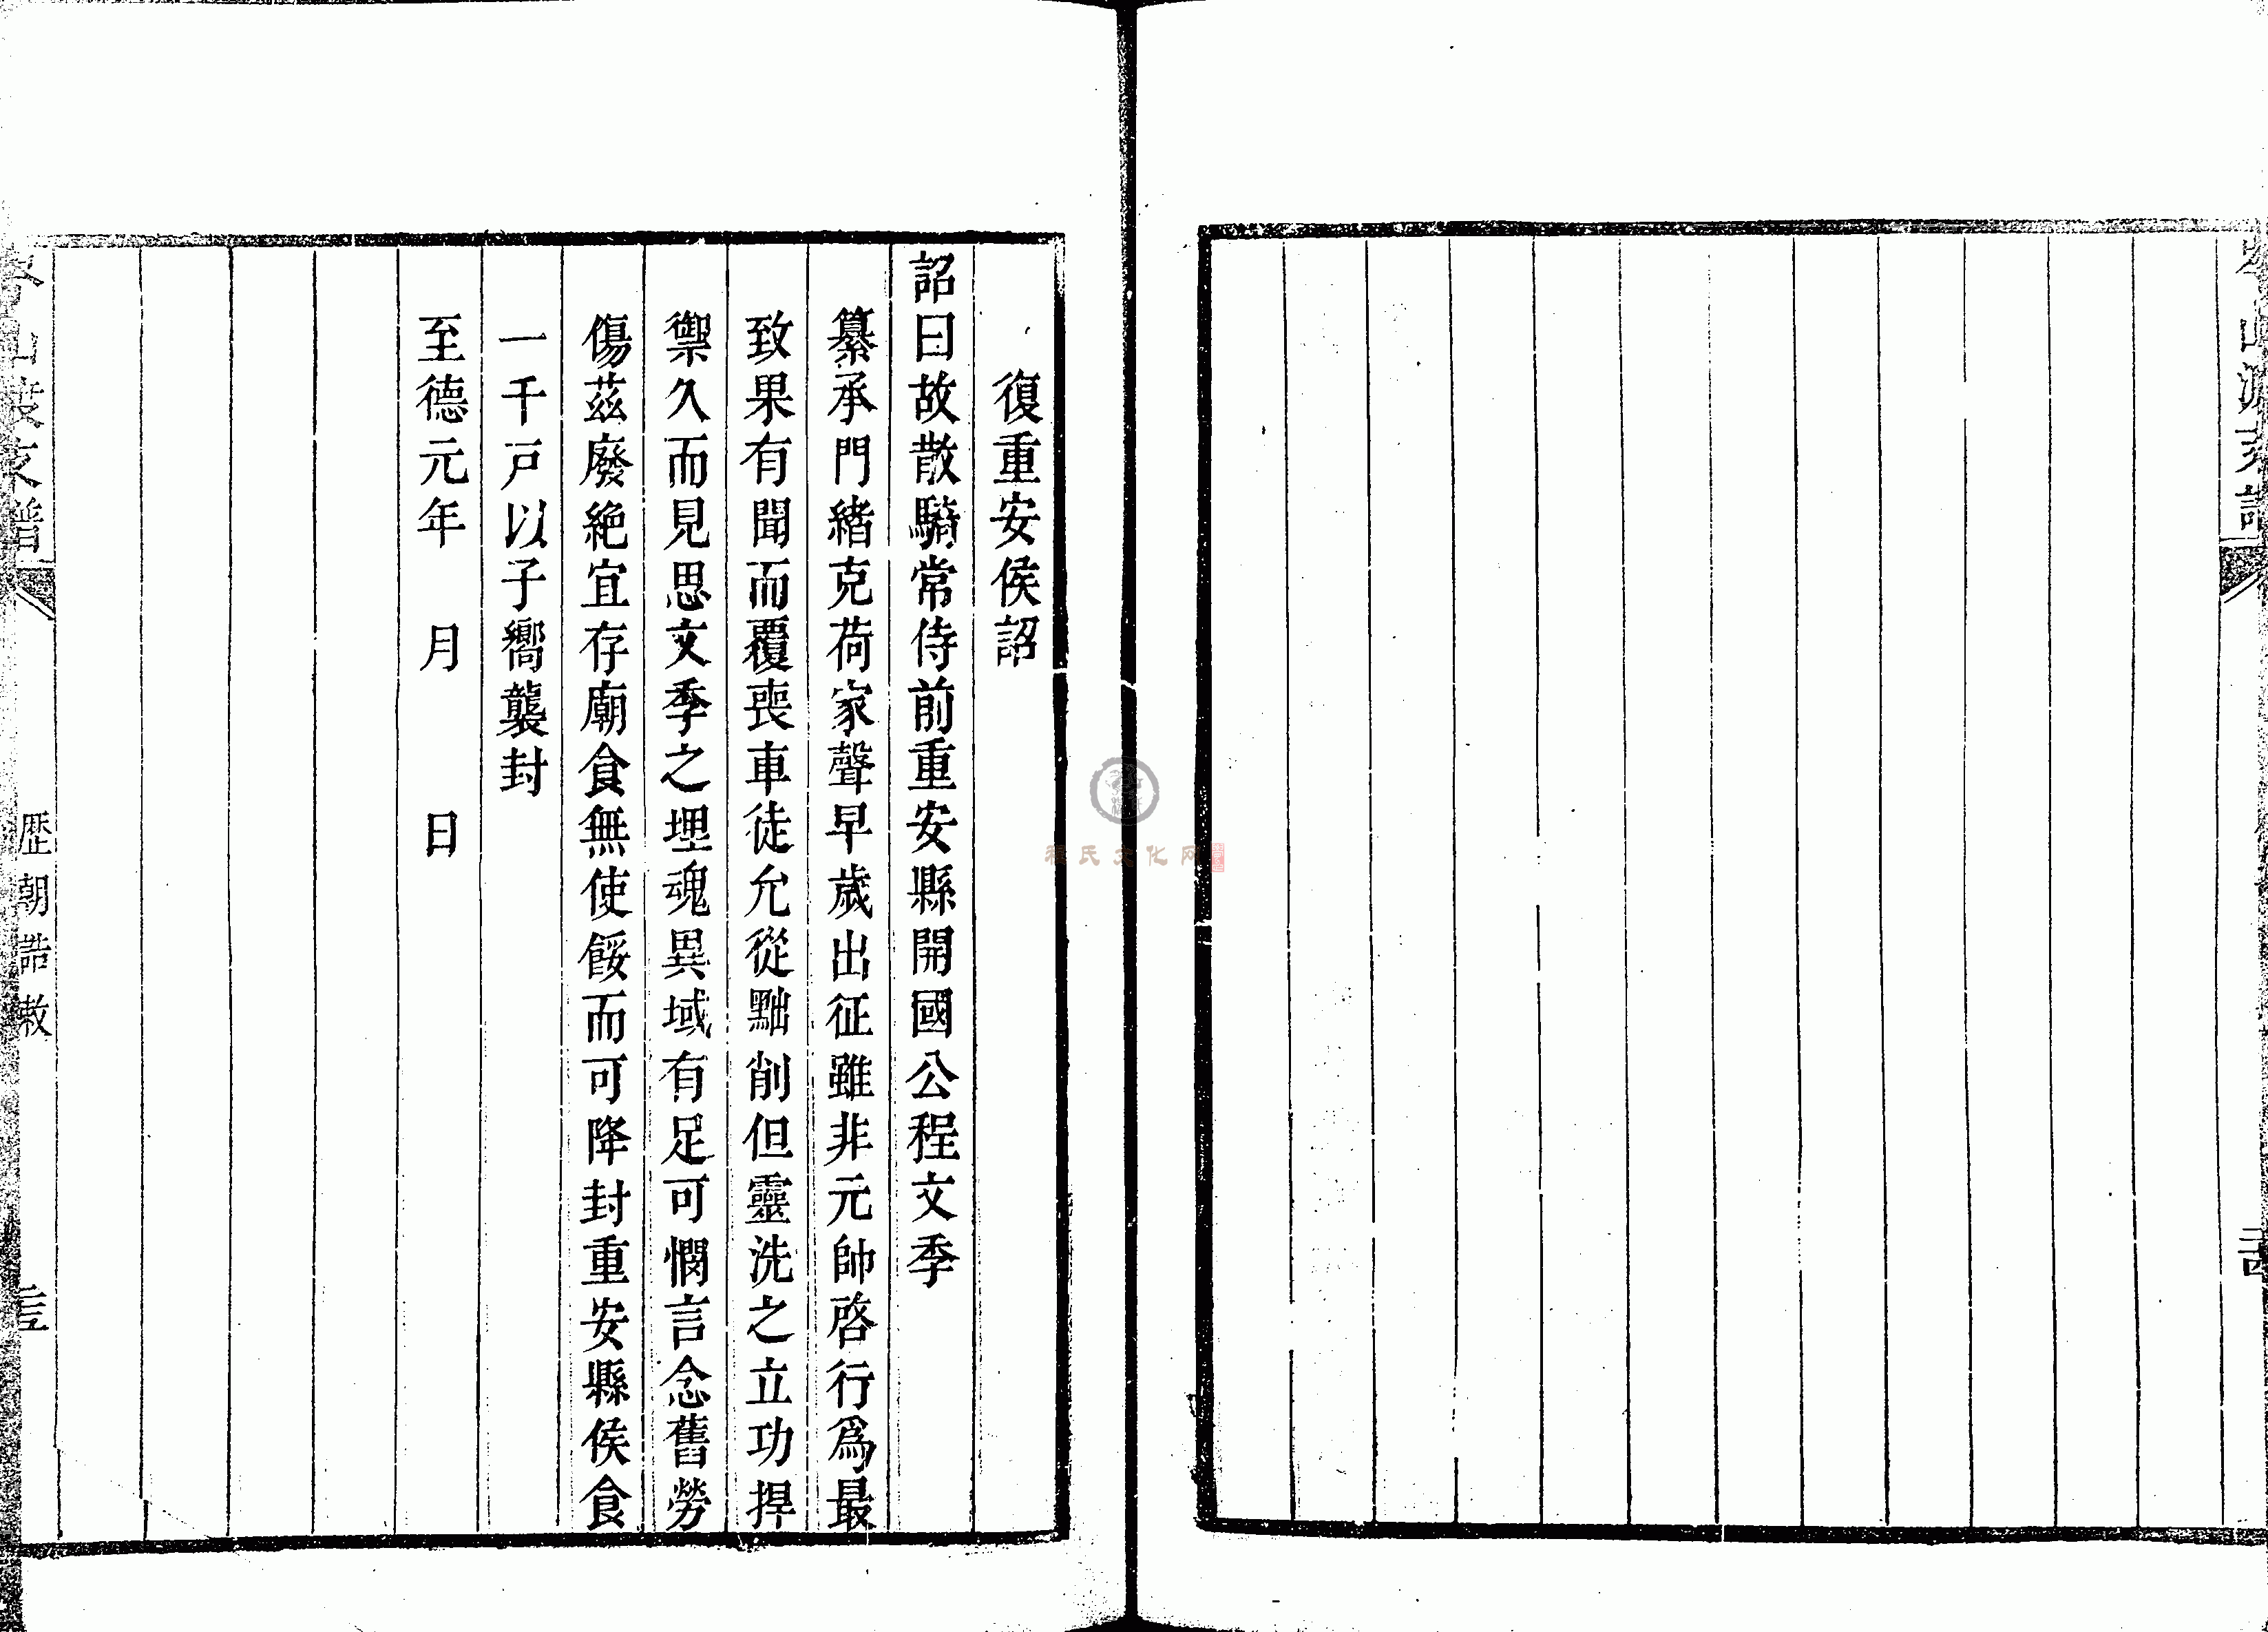 復重安侯詔
詔曰故散騎常侍前重安縣開國公程文季
纂承門緒克荷家聲早歲出征雖非元帥啓行爲最
致果有聞而覆喪車徒允從黜削但靈洗之立功捍
禦久而見思文季之埋魂異域有足可憫言念舊勞
傷茲廢絕宜存廟食無使餒而可降封重安縣侯食
一千戸以子嚮襲封
至德元年　月　　日
歴朝誥敕
程氏文化网